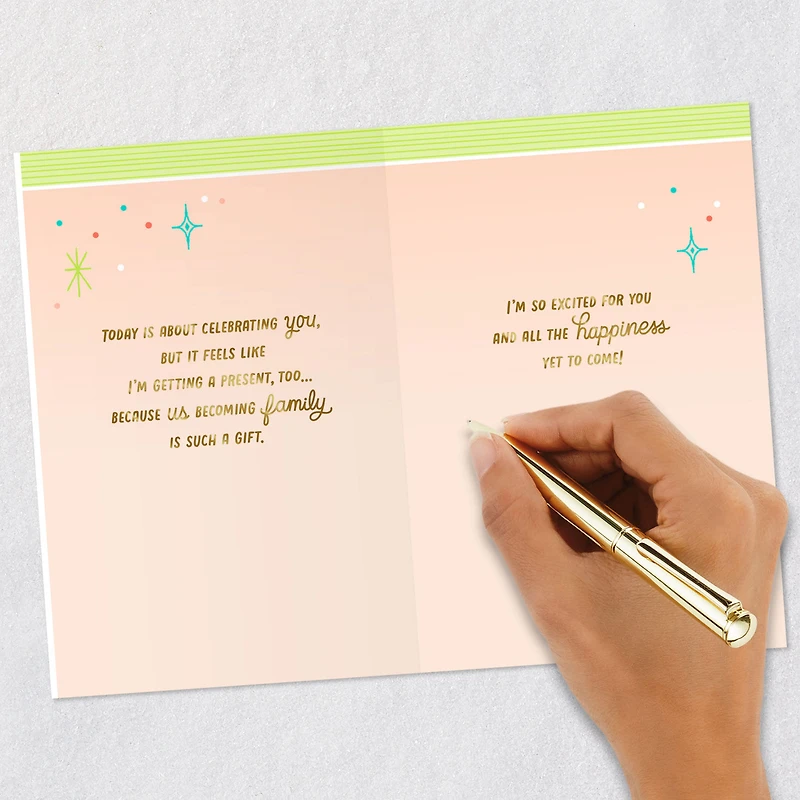 TODAY IS ABOUT CELEBRATING you,
BUT IT FEELS LIKE
I'M GETTING A PRESENT, TOO...
BECAUSE us BECOMING family
IS SUCH A GIFT.
I'M SO EXCITED FOR YOU
AND ALL THE happiness
YET TO COME!